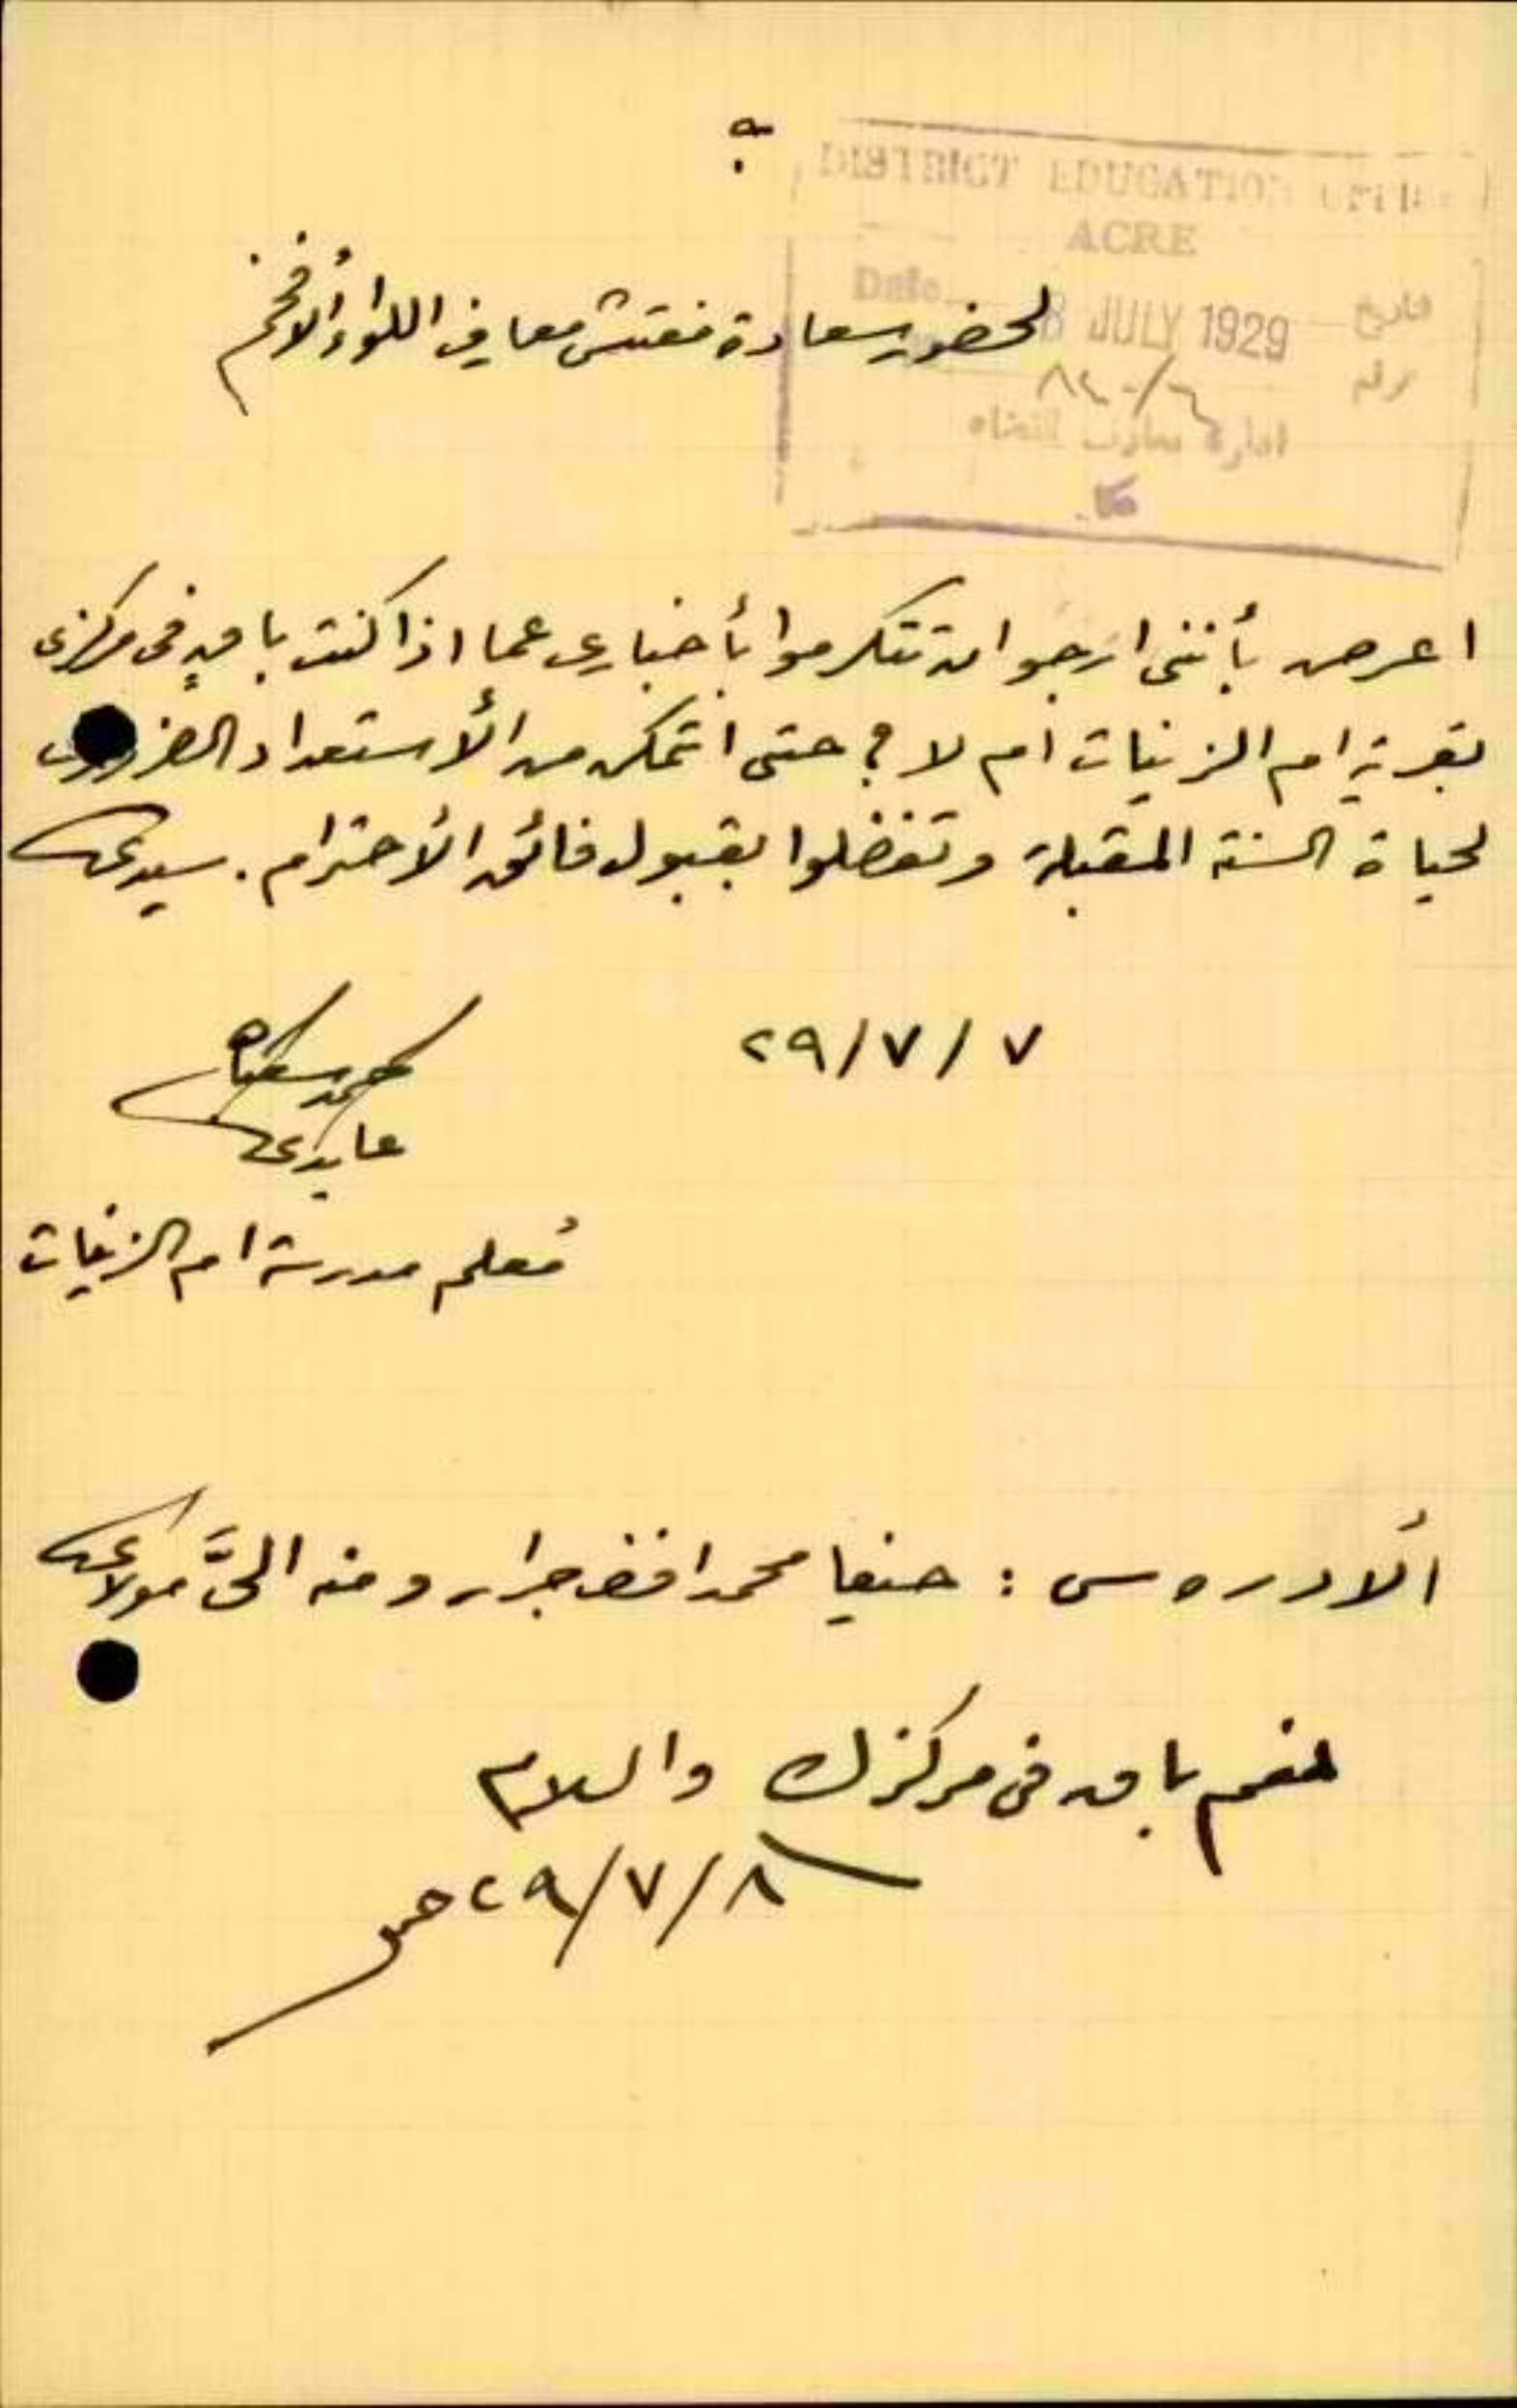 DISTRICT EDUCATION OFFICE
ACRE
Date 8 JULY 1929 تاريخ
٨٤٠/٦ رقم
ادارة معارف القضاء
عكا
لحضور سعادة مفتش معارف اللواء الأفخم
اعرض بأننى ارجوا ان تتكرموا بأخبارى عما اذا كنت باقٍ فى مركزى
بقرية ام الزينات أم لا؟ حتى اتمكن من الأستعداد الضرورى
لحياة السنة المقبلة وتفضلوا بقبول فائق الأحترام. سيدى
٢٩/٧/٧
محمد
عابدى
مُعلم مدرسة ام الزينات
ألادروس: حيفا محمد افندى جرار ومنه الىَّ مولاى
نعم باق فى مركزك والسلام
٢٩/٧/٨